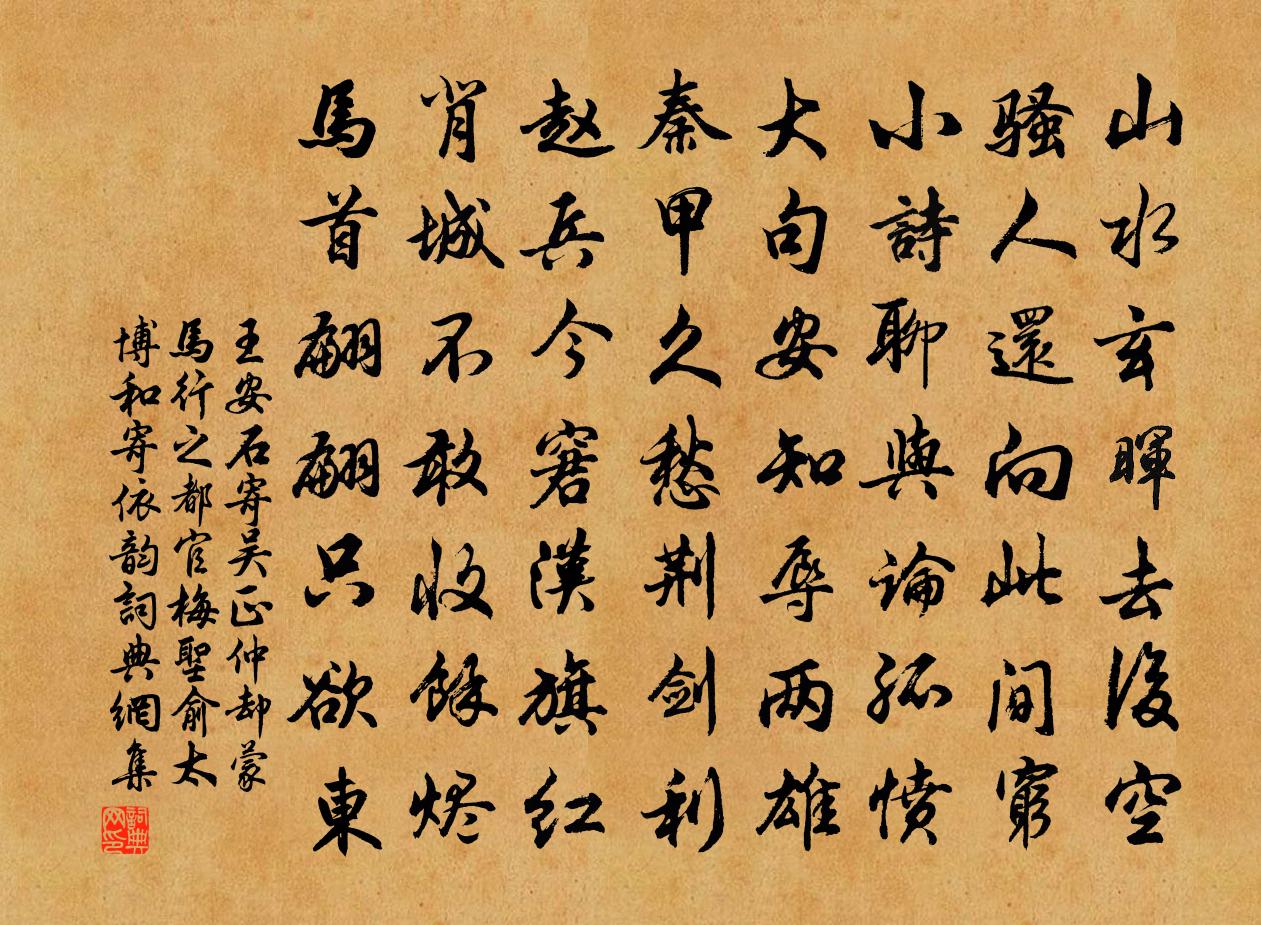 山水玄暉去後空
騷人還向此間窮
小詩聊與論孤憤
大句安知辱两雄
秦甲久愁荆劍利
赵兵今窘漢旗红
背城不敢收餘烬
馬首翩翩只欲東
王安石寄吴正仲却蒙
馬行之都官梅聖俞太
博和寄依韵詞典網集
詞典网印